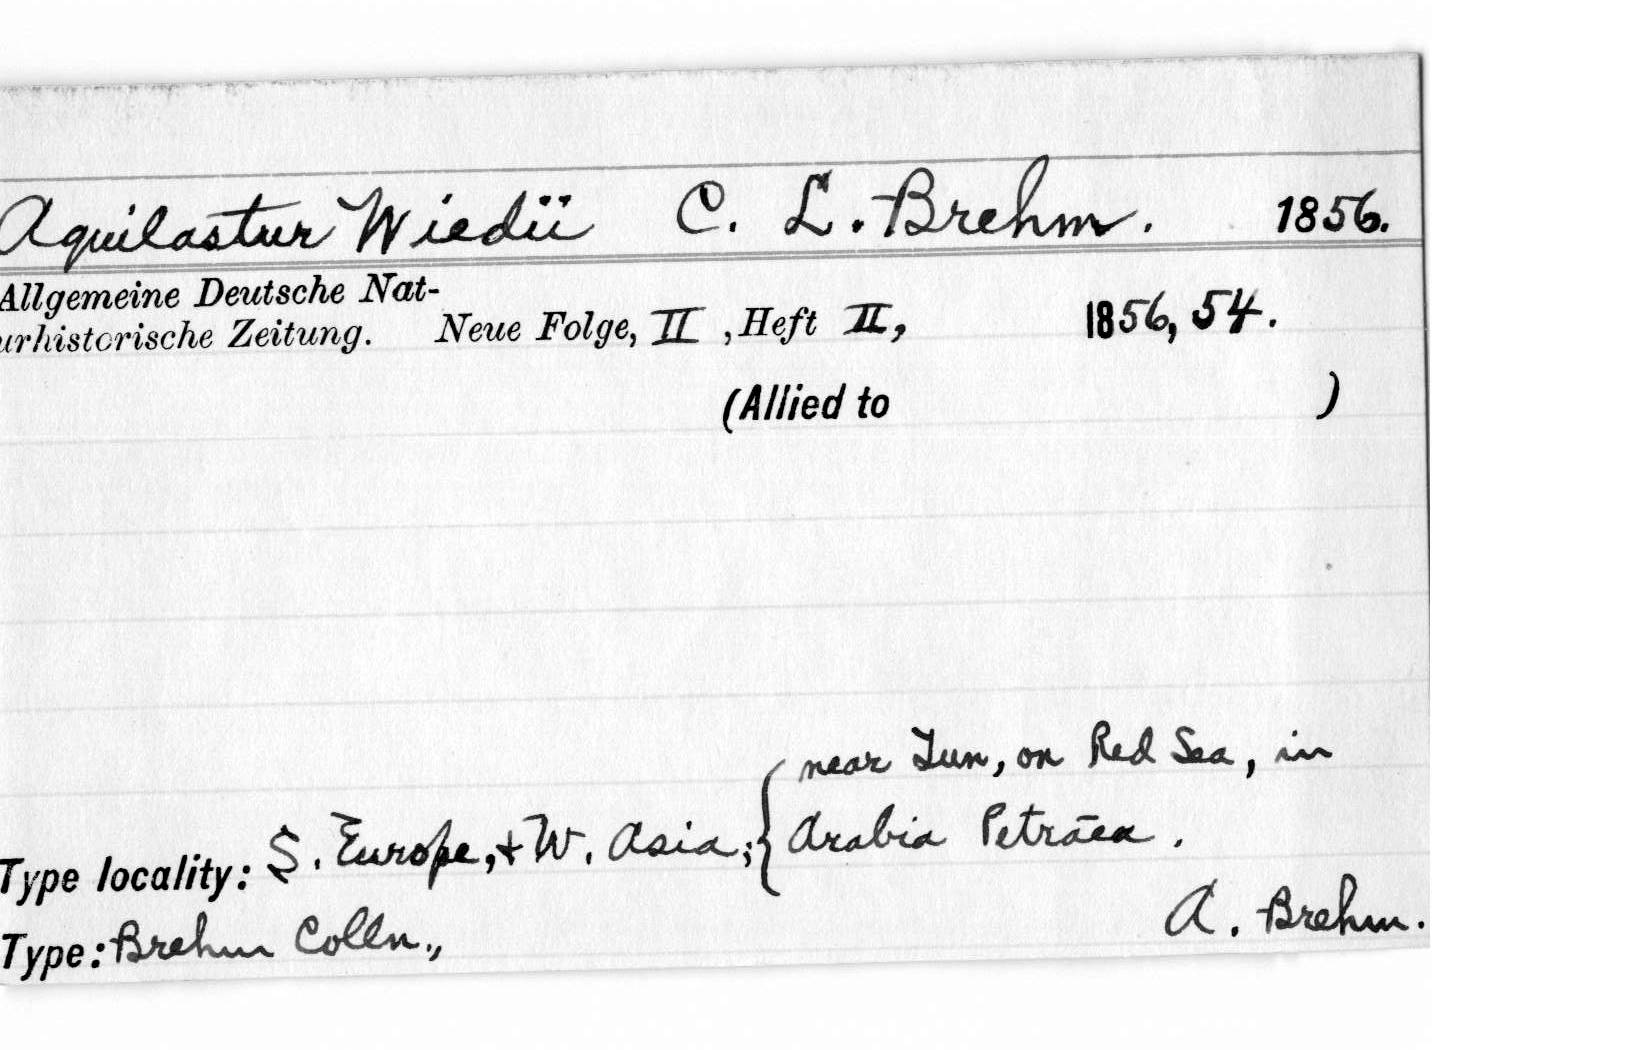 Aquilastur Wiedii C. L. Brehm. 1856.
Allgemeine Deutsche Nat-
urhistorische Zeitung. Neue Folge, II , Heft II, 1856, 54.
(Allied to )
near Tun, on Red Sea, in
Type locality: S. Europe, + W. Asia; { Arabia Petraea.
Type: Brehm Colln., A. Brehm.